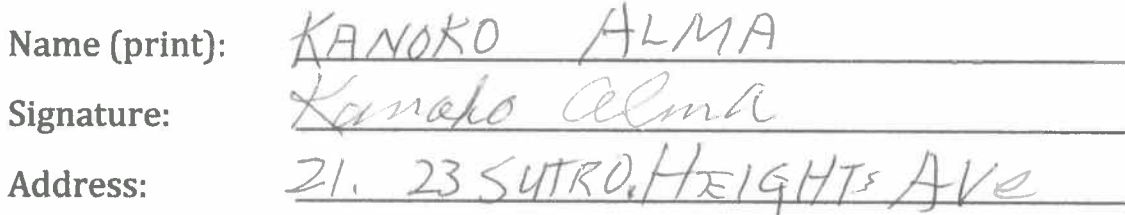 Name (print): KANOKO ALMA
Signature: Kanoko Alma
Address: 21. 23 SUTRO. HEIGHTS AVe